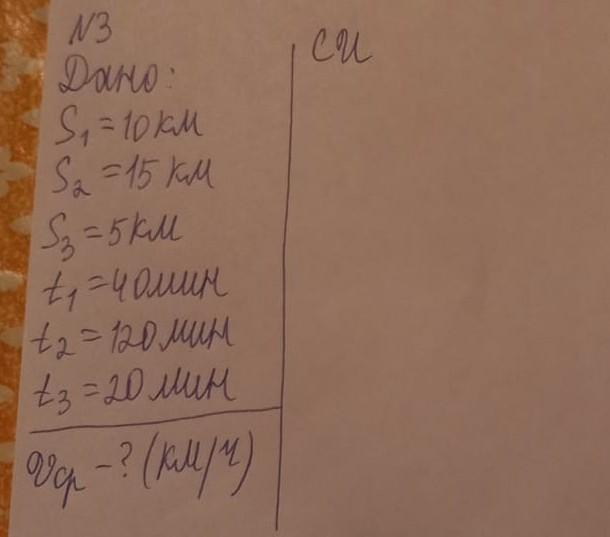 N3
Дано:
S₁ = 10 км
S₂ = 15 км
S₃ = 5 км
t₁ = 40 мин
t₂ = 120 мин
t₃ = 20 мин
υср - ? (км/ч)
СИ